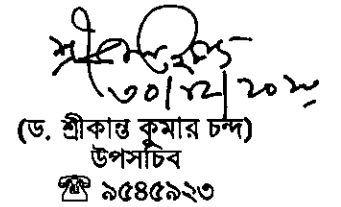 ৩০/১২/২০২০
(ড. শ্রীকান্ত কুমার চন্দ)
উপসচিব
☎ ৯৫৪৫৯২৩